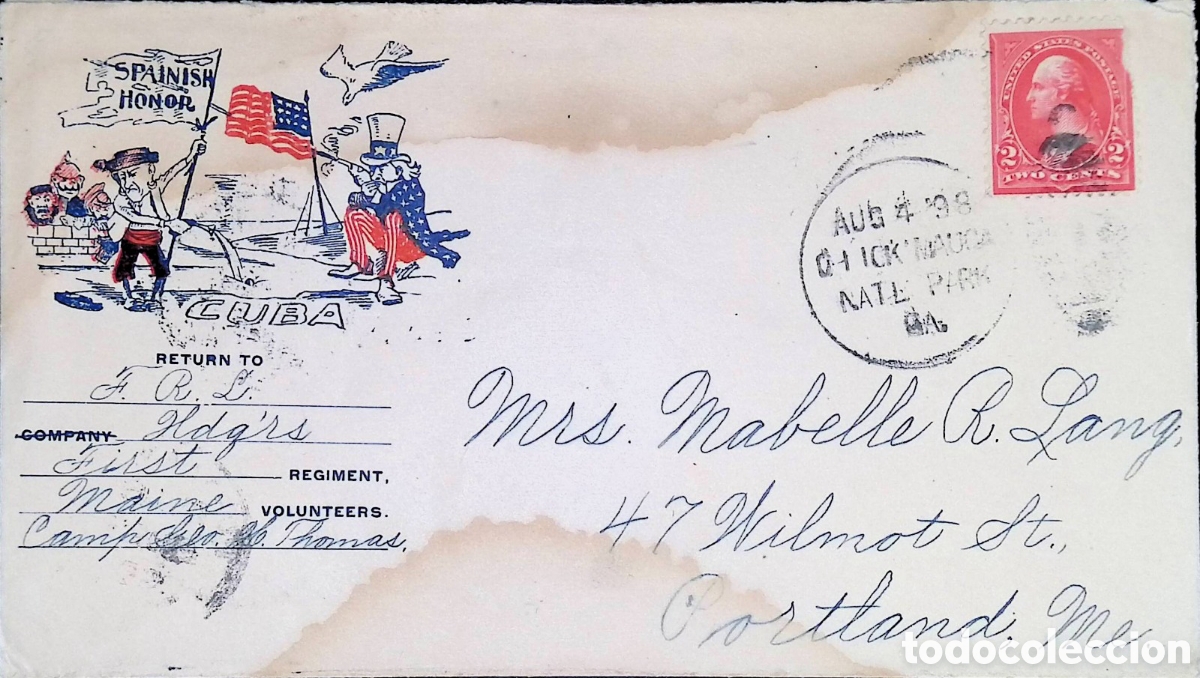 SPAINISH
HONOR
CUBA
RETURN TO
F. R. L.
COMPANY Hdq'rs
First REGIMENT,
Maine VOLUNTEERS.
Camp Geo. H. Thomas.
UNITED STATES POSTAGE
2 2
TWO CENTS
AUG 4 '98
CHICK'MAUGA
NAT'L PARK
GA.
Mrs. Mabelle R. Lang,
47 Wilmot St.,
Portland, Me
todocoleccion